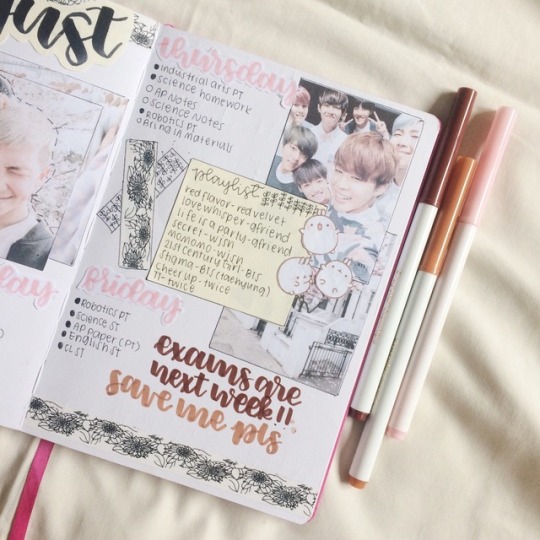 ust
thursday
industrial arts pt
science homework
AP Notes
science Notes
Robotics pt
Aring SA materials
playlist
red flavor-red velvet
love whisper-gfriend
life is a party-gfriend
secret-wjsn
momomo-wjsn
21st century girl-BTS
stigma-BTS (taehyung)
cheer up-twice
TT-twice
day
friday
Robotics pt
science st
AP paper (pt)
English st
CL ST
exams are
next week!!
save me pls